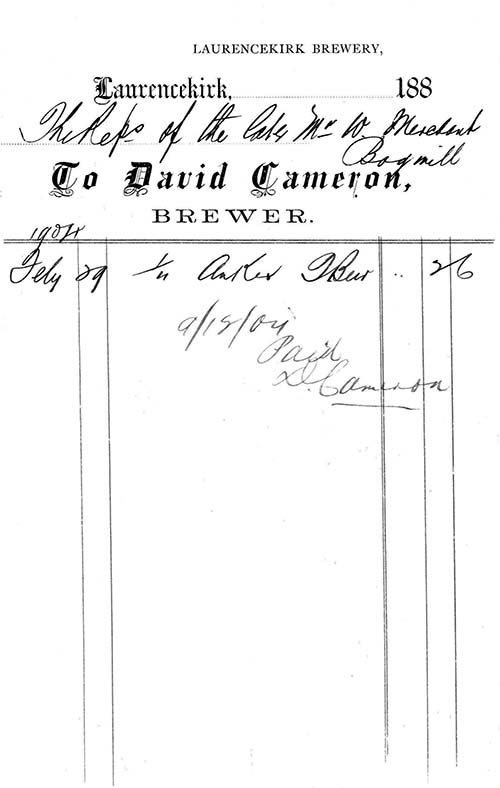 LAURENCEKIRK BREWERY,
Laurencekirk, 188
The Reps of the late Mr W Merchant
Bogmill
To David Cameron,
BREWER.
1904
Feby 29 Anker T Beer .. 2 6
9/12/04
Paid
D. Cameron